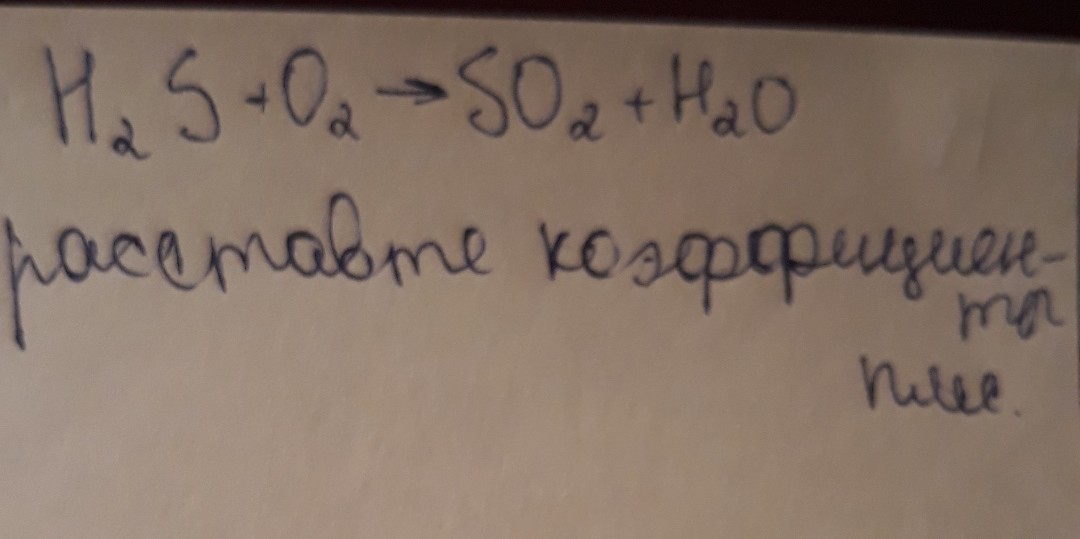 H₂S+O₂→SO₂+H₂O
расставте коэффициен-
ты
плис.